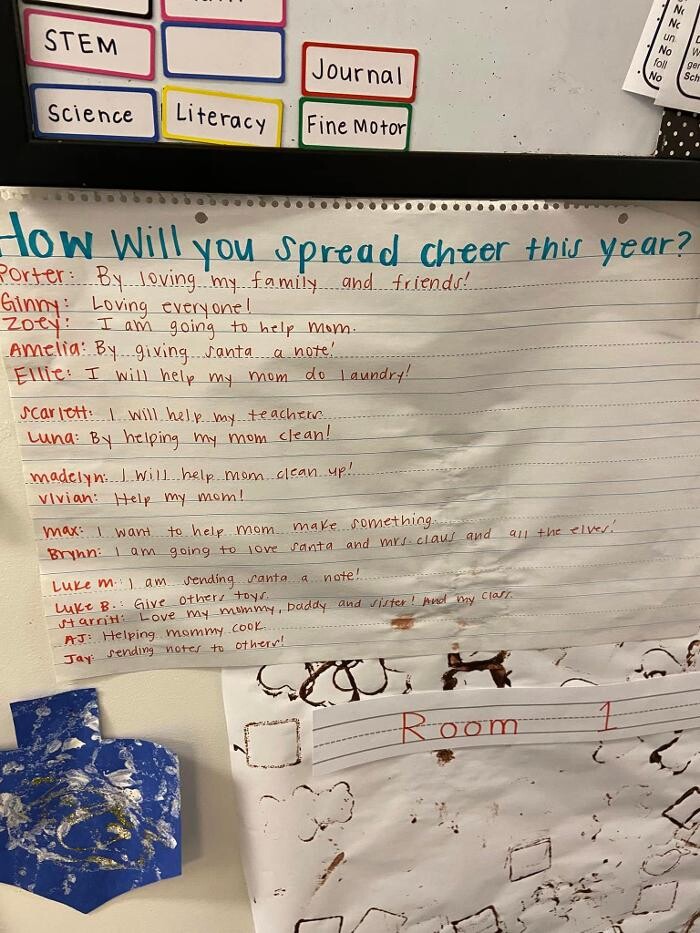 STEM
Journal
Science
Literacy
Fine Motor
How will you spread cheer this year?
Porter: By loving my family and friends!
Ginny: Loving everyone!
Zoey: I am going to help mom.
Amelia: By giving santa a note!
Ellie: I will help my mom do laundry!
Scarlett: I will help my teachers.
Luna: By helping my mom clean!
madelyn: I will help mom clean up!
vivian: Help my mom!
max: I want to help mom make something.
Brynn: I am going to love santa and mrs. claus and all the elves!
Luke M.: I am sending santa a note!
Luke B.: Give others toys.
Starritt: Love my mommy, Daddy and sister! And my class.
AJ: Helping mommy cook.
Jay: sending notes to others!
Room 1